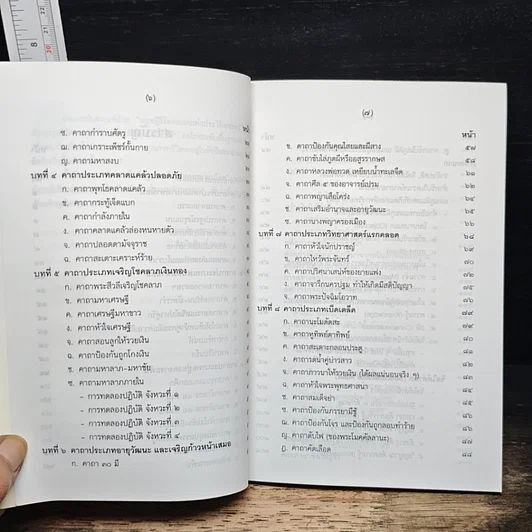 (๖)
ซ. คาถากำราบศัตรู
ฌ. คาถาเกราะเพ็ชร์กั้นกาย
ญ. คาถามหาสงบ
บทที่ ๔ คาถาประเภทคลาดแคล้วปลอดภัย
ก. คาถาพุทโธคลาดแคล้ว
ข. คาถากระทู้เจ็ดแบก
ค. คาถากำลังภายใน
ง. คาถาคลาดแคล้วล่องหนหายตัว
จ. คาถาปลอดตามัจจุราช
ฉ. คาถาสะเดาะเคราะห์ร้าย
บทที่ ๕ คาถาประเภทเจริญโชคลาภเงินทอง
ก. คาถาพระสีวลีเจริญโชคลาภ
ข. คาถามหาเศรษฐี
ค. คาถาเศรษฐีมหาขาว
ง. คาถาหัวใจเศรษฐี
จ. คาถาสอนลูกให้รวยเงิน
ฉ. คาถาป้องกันถูกโกงเงิน
ช. คาถามหาลาภ-มหาชัย
ซ. คาถามหาลาภภายใน
- การทดลองปฏิบัติ จังหวะที่ ๑
- การทดลองปฏิบัติ จังหวะที่ ๒
- การทดลองปฏิบัติ จังหวะที่ ๓
- การทดลองปฏิบัติ จังหวะที่ ๔
บทที่ ๖ คาถาประเภทอายุวัฒนะ และเจริญก้าวหน้าเสมอ
ก. คาถา ๓๐ มี
(๗)
หน้า
ข. คาถาป้องกันคุณไสยและผีสาง ๕๗
ค. คาถาขับไล่ภูตผีหรืออสูรรากษส ๕๘
ง. คาถาหลวงพ่อทวด เหยียบน้ำทะเลจืด ๖๐
จ. คาถาศีล ๕ ของอาจารย์เปรม ๖๑
ฉ. คาถาพญาเสือโคร่ง ๖๒
ช. คาถาเสริมอำนาจและอายุวัฒนะ ๖๔
ซ. คาถานางพญาครองเมือง ๖๕
บทที่ ๗ คาถาประเภทวิทยาศาสตร์แรกคลอด ๖๘
ก. คาถาหัวใจนักปราชญ์ ๖๙
ข. คาถาไหว้พระจันทร์
ค. คาถาปริศนาเสน่ห์ของยายแฟง
ง. คาถาจารึกนครปฐม ทำให้เกิดมีสติปัญญา
จ. คาถาพระปัจฉิมโอวาท
บทที่ ๘ คาถาประเภทเบ็ดเตล็ด ๗๙
ก. คาถานะโมตัดสะ
ข. คาถาหูทิพย์ตาทิพย์
ค. คาถาสะเดาะกลอนประตู
ง. คาถารดน้ำคู่บ่าวสาว
จ. คาถาภาวนาให้รวยเงิน (ได้ผลแน่นอนจริง ๆ)
ฉ. คาถาหัวใจพระพุทธศาสนา
ช. คาถาสมเด็จย่า
ซ. คาถาป้องกันภรรยามีชู้
ฌ. คาถาป้องกันโจร และป้องกันถูกลอบทำร้าย
ญ. คาถาดับไฟ (ของพระโมคคัลลานะ)
ฎ. คาถาคัดเลือด